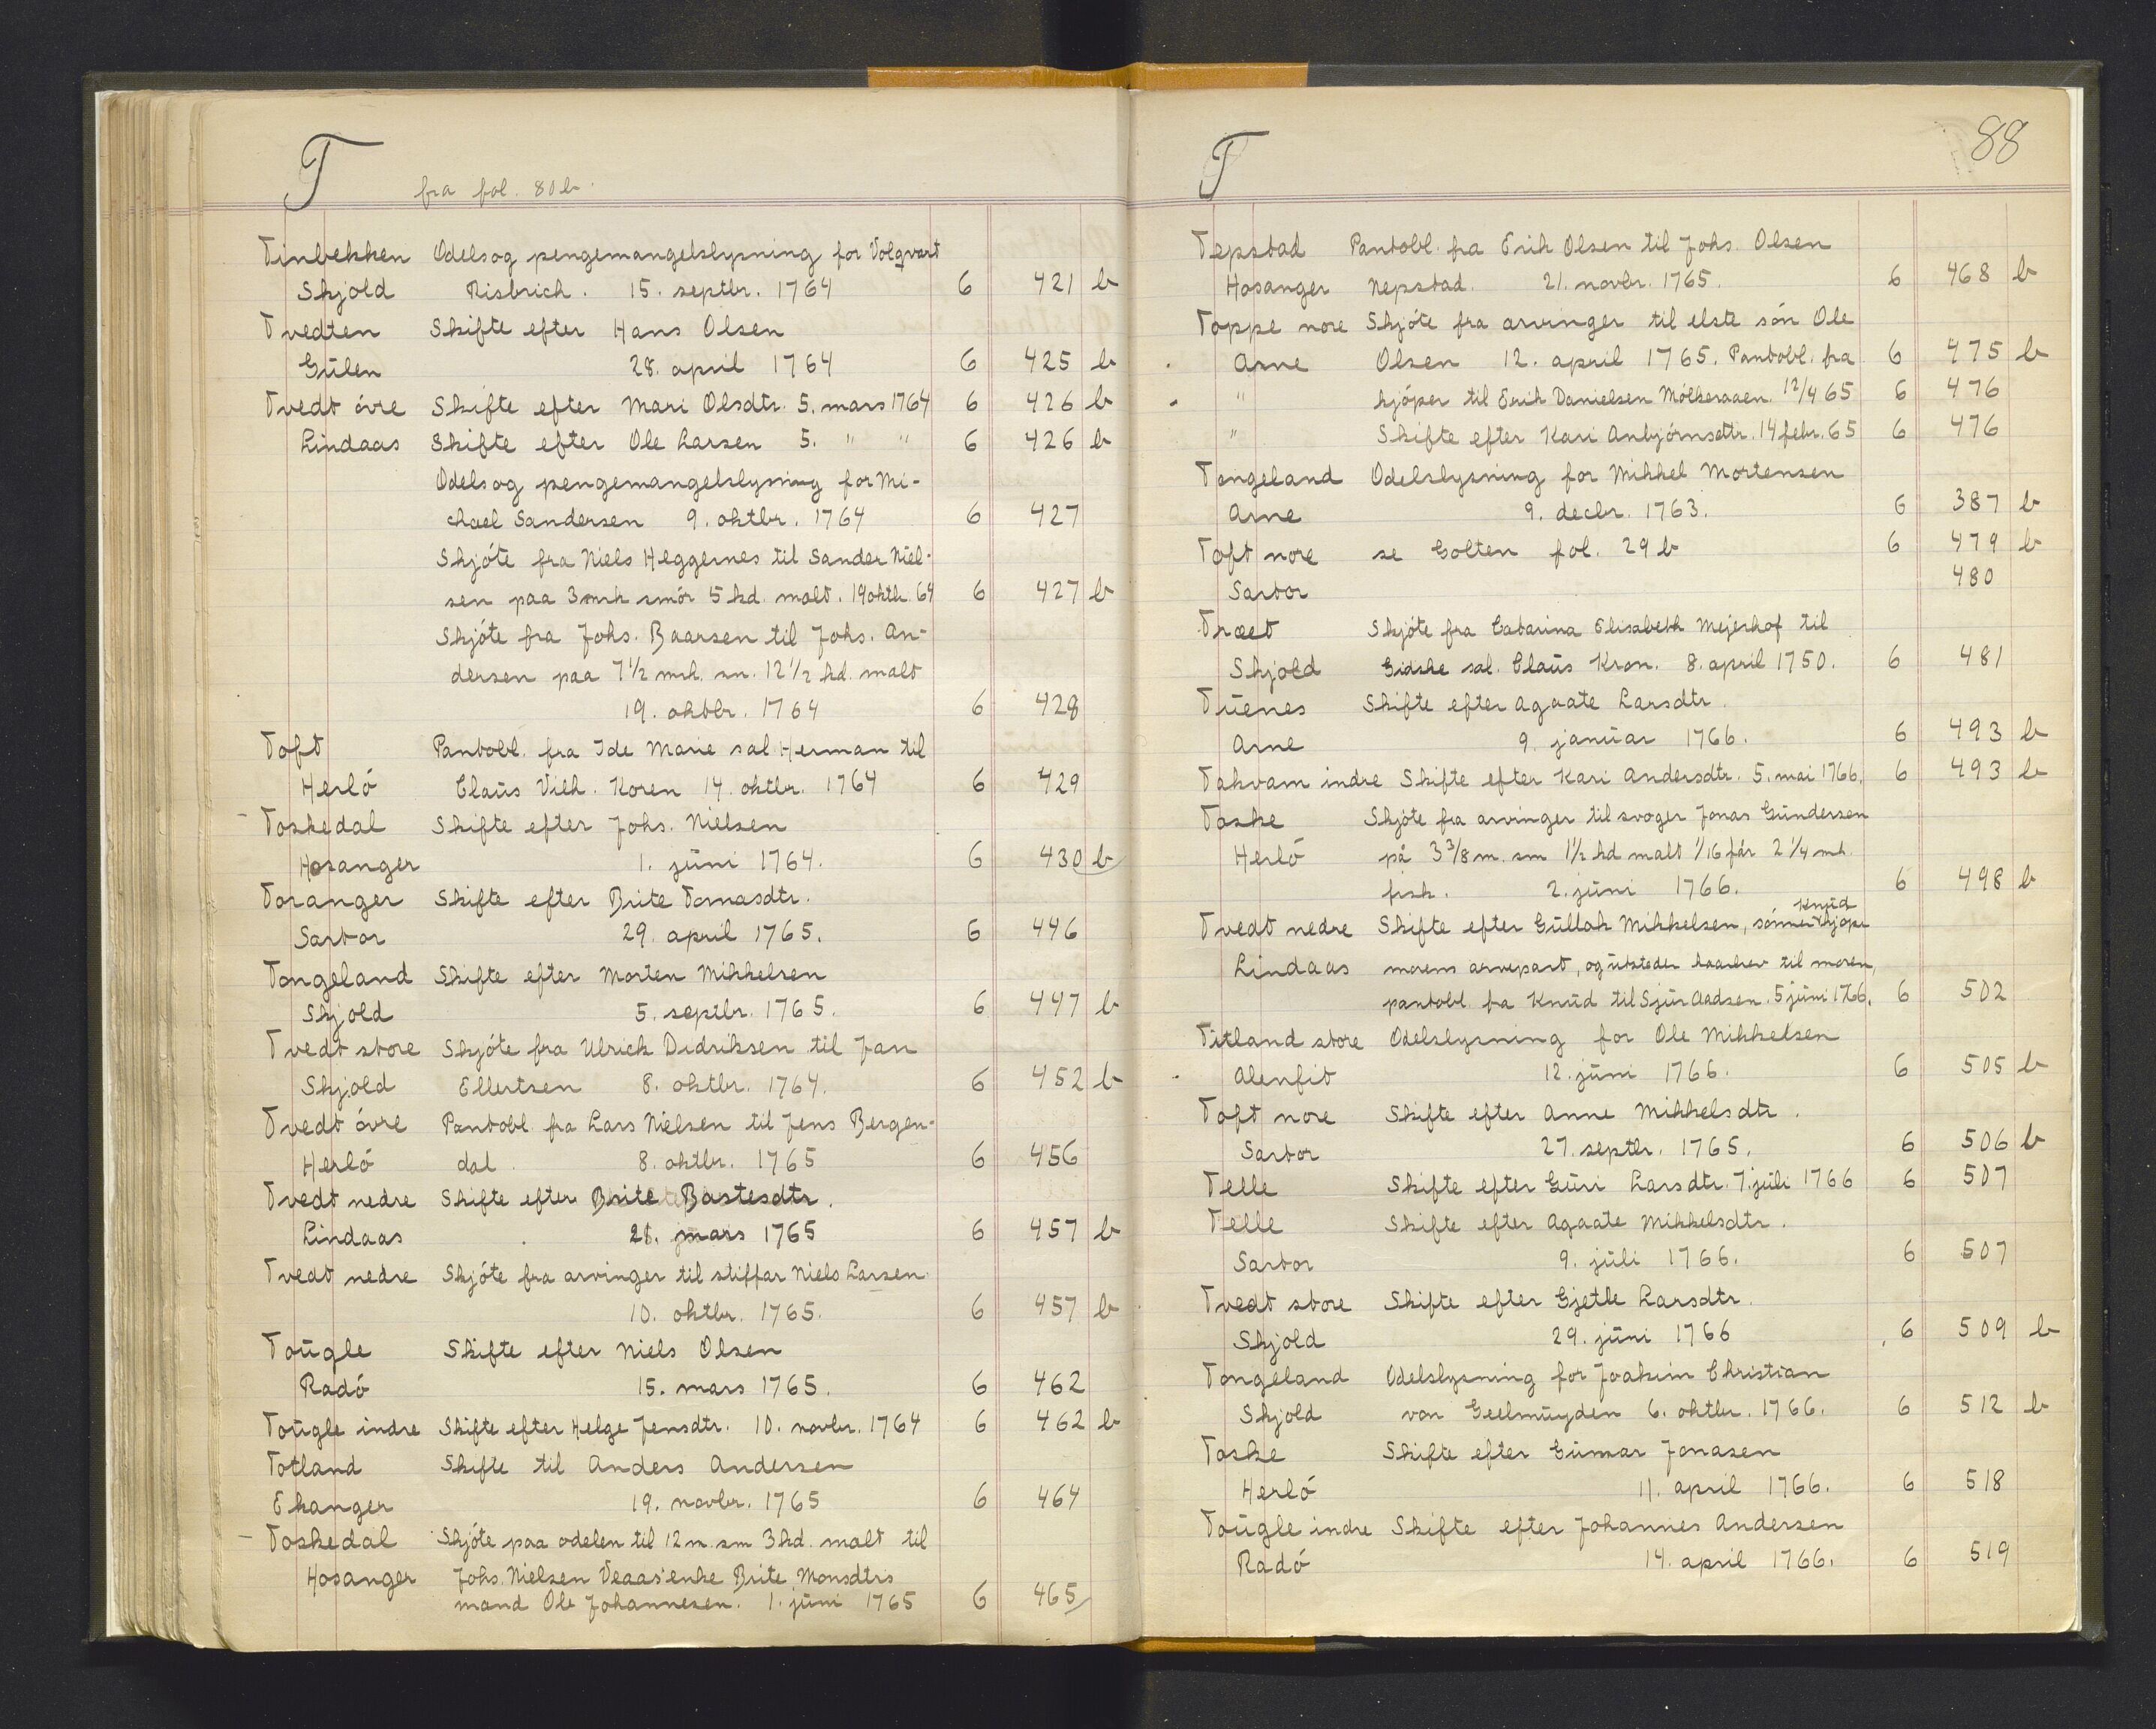 T fra fol. 80 b.
Tinbekken Odels og pengemangelslysning for Volqvart
Skjold Risbrich. 15. septbr. 1764 6 421 b
Tvedten Skifte efter Hans Olsen
Gülen 28. april 1764 6 425 b
Tvedt övre Skifte efter Mari Olsdtr. 5. mars 1764 6 426 b
Lindaas Skifte efter Ole Larsen 5. " " 6 426 b
Odels og pengemangelslysning for Mi-
chael Sandersen 9. oktbr. 1764 6 427
Skjöte fra Niels Heggernes til Sander Niel-
sen paa 3 mrk smör 5 kd. malt. 19 oktb. 64 6 427 b
Skjöte fra Johs. Baarsen til Johs. An-
dersen paa 7 1/2 mrk. sm. 12 1/2 kd. malt
19. oktbr. 1764 6 428
Toft Pantobl. fra Ide Marie sal Herman til
Herlö Claüs Vilh. Koren 14. oktbr. 1764 6 429
- Toskedal Skifte efter Johs. Nielsen
Hosanger 1. jüni 1764. 6 430 b
Toranger Skifte efter Brite Tomasdtr.
Sartor 29. april 1765. 6 446
Tongeland Skifte efter Morten Mikkelsen
Skjold 5. septbr. 1765. 6 447 b
Tvedt store Skjöte fra Ulrich Didriksen til Jan
Skjold Ellertsen 8. oktbr. 1764. 6 452 b
Tvedt övre Pantobl. fra Lars Nielsen til Jens Bergen-
Herlö dal. 8. oktbr. 1765 6 456
Tvedt nedre Skifte efter Brite Bastesdtr.
Lindaas 28. mars 1765 6 457 b
Tvedt nedre Skjöte fra arvinger til stiffar Niels Larsen
10. oktbr. 1765. 6 457 b
Toügle Skifte efter Niels Olsen
Radö 15. mars 1765. 6 462
Toügle indre Skifte efter Helge Jensdtr. 10. novbr. 1764 6 462 b
Totland Skifte til Anders Andersen
Ekanger 19. novbr. 1765 6 464
- Toskedal Skjöte paa odelen til 12 m. sm 3 kd. malt til
Hosanger Johs. Nielsen Veaas' enke Brite Monsdtrs
mand Ole Johannesen. 1. jüni 1765 6 465
T 88
Tepstad Pantobl. fra Erik Olsen til Johs. Olsen
Hosanger Nepstad. 21. novbr. 1765. 6 468 b
Toppe nore Skjöte fra arvinger til elste sön Ole
Arne Olsen 12. april 1765. Pantobl. fra 6 475 b
" kjöper til Erik Danielsen Mölkeraaen. 12/4 65 6 476
" Skifte efter Kari Anbjörnsdtr. 14 febr. 65 6 476
Tongeland Odelslysning for Mikkel Mortensen
Arne 9. decbr. 1763. 6 387 b
Toft nore se Golten fol. 29 b 6 479 b
Sartor 480
Træet Skjöte fra Catarina Elisabeth Mejerhof til
Skjold Gidske sal. Claüs Kron. 8. april 1750. 6 481
Tüenes Skifte efter Agaate Larsdtr.
Arne 9. janüar 1766. 6 493 b
Takvam indre Skifte efter Kari Andersdtr. 5. mai 1766. 6 493 b
Toske Skjöte fra arvinger til svoger Jonas Gündersen
Herlö på 3 3/8 m. sm 1 1/2 kd malt 1/16 får 2 1/4 mk.
fisk. 2. jüni 1766. 6 498 b
Knüd
Tvedt nedre Skifte efter Güllak Mikkelsen, sönnen kjöper
Lindaas morens arvepart, og ütsteder kaarbrev til moren,
pantobl. fra Knüd til Sjür Aadsen. 5 jüni 1766. 6 502
Titland store Odelslysning for Ole Mikkelsen
Alenfit 12. jüni 1766. 6 505 b
Toft nore Skifte efter Anne Mikkelsdtr.
Sartor 27. septbr. 1765. 6 506 b
Telle Skifte efter Güri Larsdtr. 7. jüli 1766 6 507
Telle Skifte efter Agaate Mikkelsdtr.
Sartor 9. jüli 1766. 6 507
Tvedt store Skifte efter Gjetle Larsdtr.
Skjold 29. jüni 1766 6 509 b
Tongeland Odelslysning for Joakim Christian
Skjold von Geelmüyden 6. oktbr. 1766. 6 512 b
Toske Skifte efter Günnar Jonasen
Herlö 11. april 1766. 6 518
Toügle indre Skifte efter Johannes Andersen
Radö 14. april 1766. 6 519